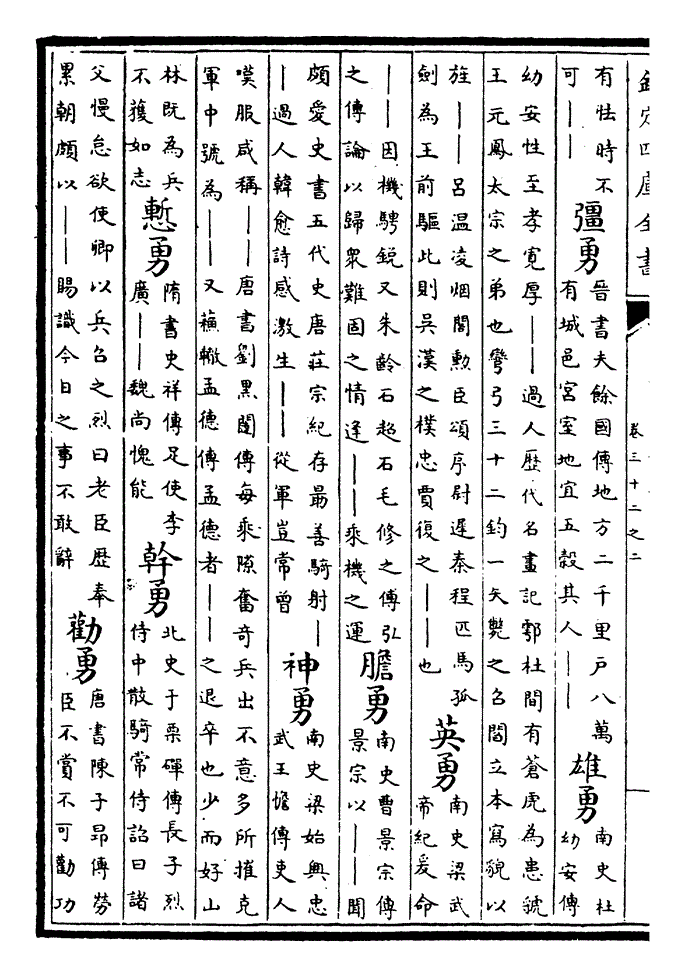 欽定四庫全書 卷三十二之二
有怯時不
可――
彊勇
晉書夫餘國傳地方二千里戶八萬
有城邑宮室地宜五穀其人――
雄勇
南史杜
幼安傳
幼安性至孝寬厚――過人歷代名畫記鄠杜間有蒼虎為患虢
王元鳳太宗之弟也彎弓三十二鈞一矢斃之召閻立本寫貌以
旌――呂温凌烟閣勲臣頌序尉遲秦程匹馬孤
劍為王前驅此則吳漢之樸忠賈復之――也
英勇
南史梁武
帝紀爰命
――因機騁銳又朱齡石超石毛修之傳弘
之傳論以歸衆難固之情逢――乘機之運
膽勇
南史曹景宗傳
景宗以――聞
頗愛史書五代史唐莊宗紀存最善騎射―
―過人韓愈詩感激生――從軍豈常曾
神勇
南史梁始興忠
武王憺傳吏人
嘆服咸稱――唐書劉黑闥傳每乘隙奮奇兵出不意多所摧克
軍中號為――又蘇轍孟德傳孟德者――之退卒也少而好山
林既為兵
不獲如志
慙勇
隋書史祥傳足使李
廣――魏尚愧能
幹勇
北史于栗磾傳長子烈
侍中散騎常侍詔曰諸
父慢怠欲使卿以兵召之烈曰老臣歷奉
累朝頗以――賜識今日之事不敢辭
勸勇
唐書陳子昂傳勞
臣不賞不可勸功